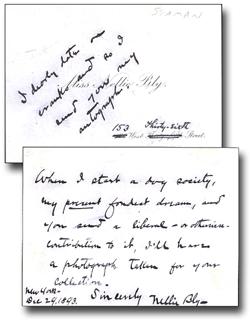 SEAMAN
Miss Nellie Bly.
I dearly
and so I
send you my
autograph
153 Thirty-sixth
West Street.
When I start a dog society,
my present fondest dream, and
you send a liberal - or otherwise -
contribution to it, I'll have
a photograph taken for your
collection.
New York -
Dec 29, 1893. Sincerely Nellie Bly -